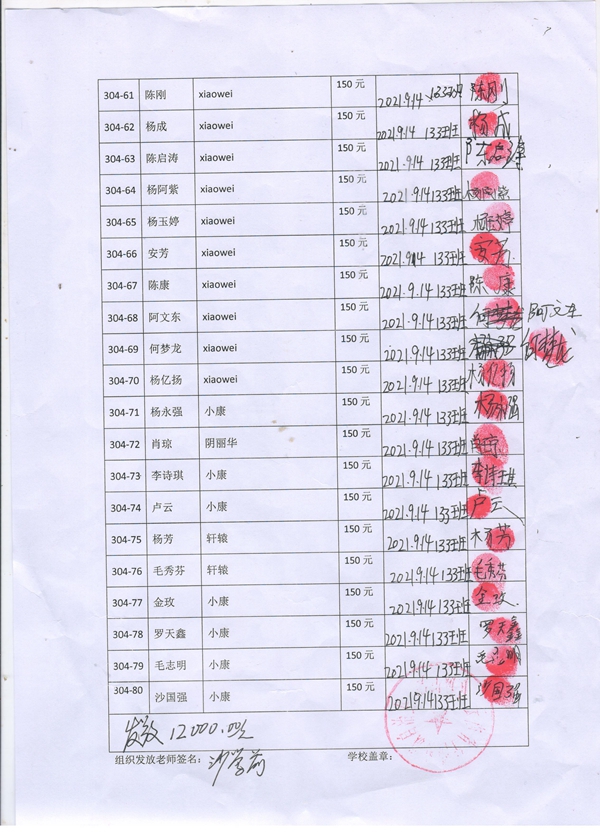 304-61 陈刚 xiaowei 150 元 2021.9.14 133班 陈刚
304-62 杨成 xiaowei 150 元 2021.9.14 133班 杨成
304-63 陈启涛 xiaowei 150 元 2021.9.14 133班 陈启涛
304-64 杨阿紫 xiaowei 150 元 2021.9.14 133班 杨阿紫
304-65 杨玉婷 xiaowei 150 元 2021.9.14 133班 杨玉婷
304-66 安芳 xiaowei 150 元 2021.9.14 133班 安芳
304-67 陈康 xiaowei 150 元 2021.9.14 133班 陈康
304-68 阿文东 xiaowei 150 元 2021.9.14 133班 阿文东
304-69 何梦龙 xiaowei 150 元 2021.9.14 133班 何梦龙
304-70 杨亿扬 xiaowei 150 元 2021.9.14 133班 杨亿扬
304-71 杨永强 小康 150 元 2021.9.14 133班 杨永强
304-72 肖琼 阴丽华 150 元 2021.9.14 133班 肖琼
304-73 李诗琪 小康 150 元 2021.9.14 133班 李诗琪
304-74 卢云 小康 150 元 2021.9.14 133班 卢云
304-75 杨芳 轩辕 150 元 2021.9.14 133班 杨芳
304-76 毛秀芬 轩辕 150 元 2021.9.14 133班 毛秀芬
304-77 金玫 小康 150 元 2021.9.14 133班 金玫
304-78 罗天鑫 小康 150 元 2021.9.14 133班 罗天鑫
304-79 毛志明 小康 150 元 2021.9.14 133班 毛志明
304-80 沙国强 小康 150 元 2021.9.14 133班 沙国强
发放12000.00元
组织发放老师签名： 学校盖章：